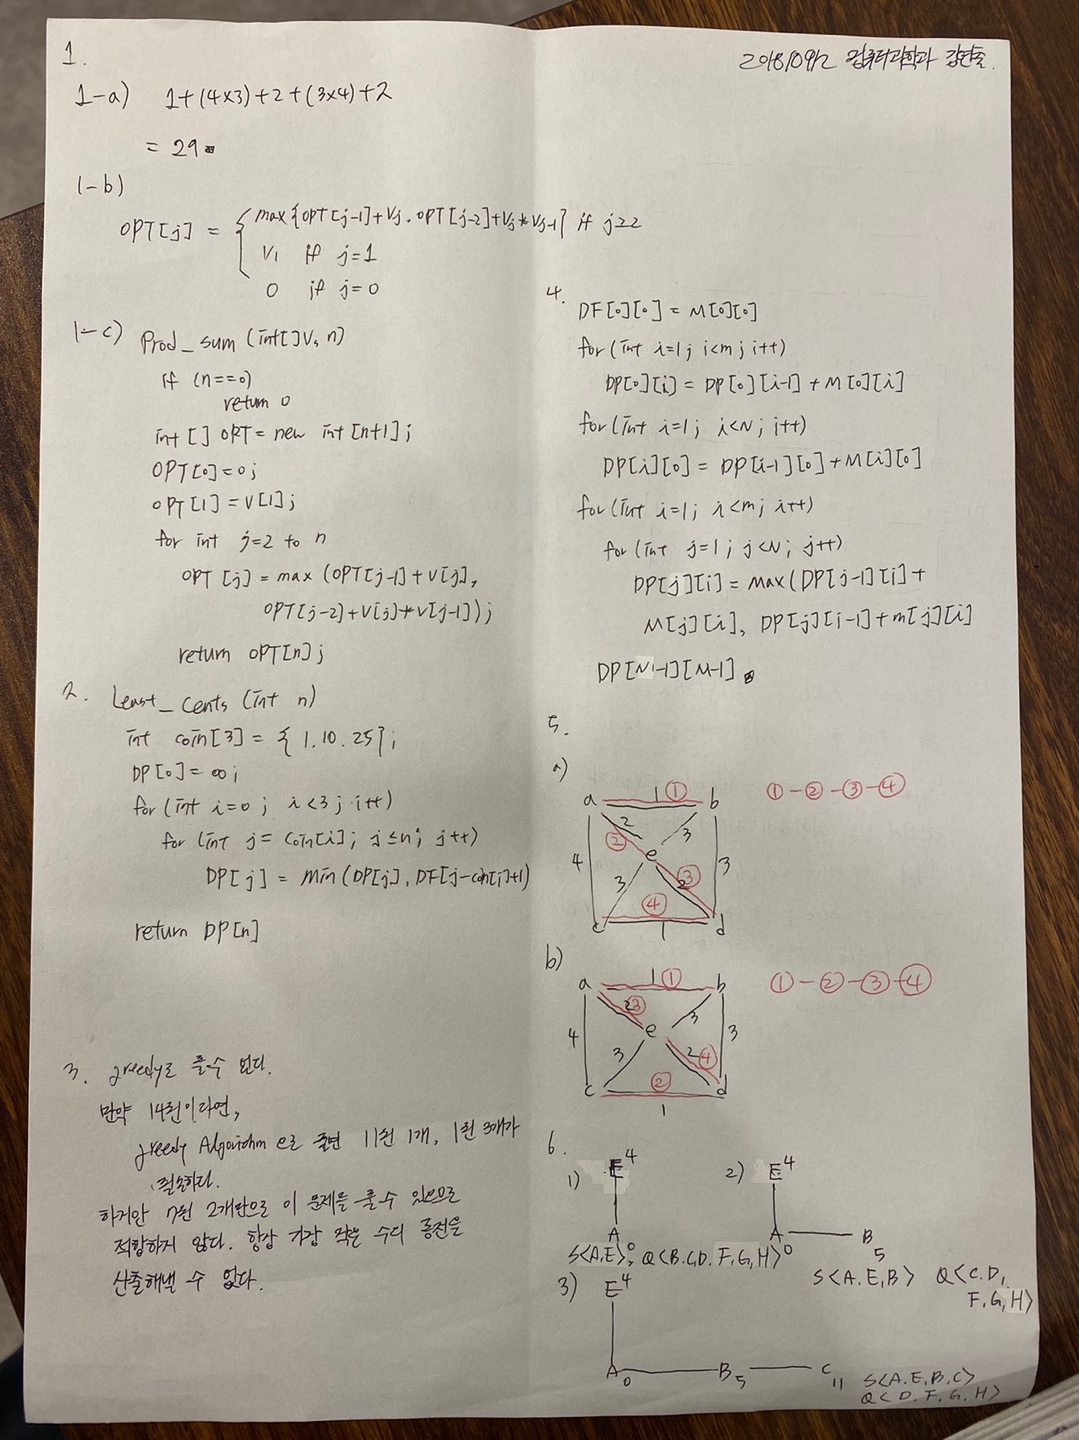 1.
201810912 컴퓨터과학과
1-a) 1+(4x3)+2+(3x4)+2
= 29
1-b)
OPT[j] = { max{OPT[j-1]+Vj, OPT[j-2]+Vj*Vj-1} if j≥2
V1 if j=1
0 if j=0
1-c) Prod_sum (int[]V, n)
if (n==0)
return 0
int [] OPT = new int [n+1];
OPT[0]=0;
OPT[1]=V[1];
for int j=2 to n
OPT [j] = max (OPT[j-1]+V[j],
OPT[j-2]+V[j]*V[j-1]);
return OPT[n];
2. Least_Cents (int n)
int coin[3] = { 1.10.25};
DP[0]=∞;
for (int i=0; i<3; i++)
for (int j= coin[i]; j≤n; j++)
DP[j] = min(DP[j], DP[j-coin[i]+1)
return DP[n]
3. greedy로 풀수 없다.
만약 14원이라면,
greedy Algorithm 으로 풀면 11원 1개, 1원 3개가
필요하다.
하지만 7원 2개만으로 이 문제를 풀수 있으므로
적합하지 않다. 항상 가장 적은 수의 동전을
산출해낼 수 없다.
4.
DP[0][0] = M[0][0]
for(int i=1; i<m; i++)
DP[0][i] = DP[0][i-1] + M[0][i]
for(int i=1; i<N; i++)
DP[i][0] = DP[i-1][0]+M[i][0]
for(int i=1; i<m; i++)
for(int j=1; j<N; j++)
DP[j][i] = max(DP[j-1][i]+
M[j][i], DP[j][i-1]+m[j][i]
DP[N-1][M-1]
5.
a)
a 1 ① b ①-②-③-④
2 3
② e
4 3
3 2 ③
④
c 1 d
b)
a 1 ① b ①-②-③-④
2 ③ 3
e
4 3
3 2 ④
②
c 1 d
6.
1) E4
A0
S<A,E>, Q<B,C,D,F,G,H>
2) E4
A0 B5
S<A.E,B> Q<C.D,
F,G,H>
3) E4
A0 B5 C11
S<A.E,B,C>
Q<D,F,G,H>